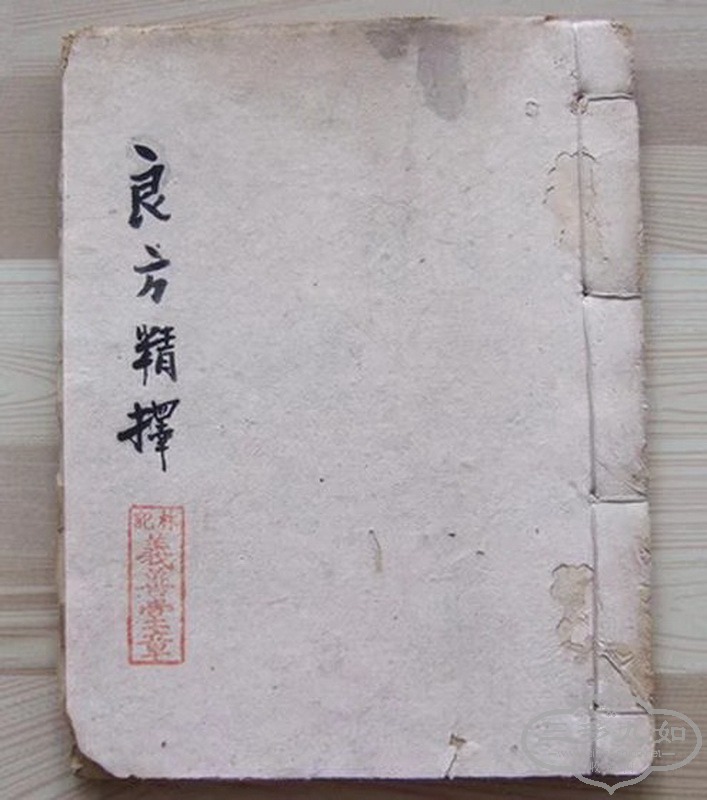 良方精擇
林記
義善堂章